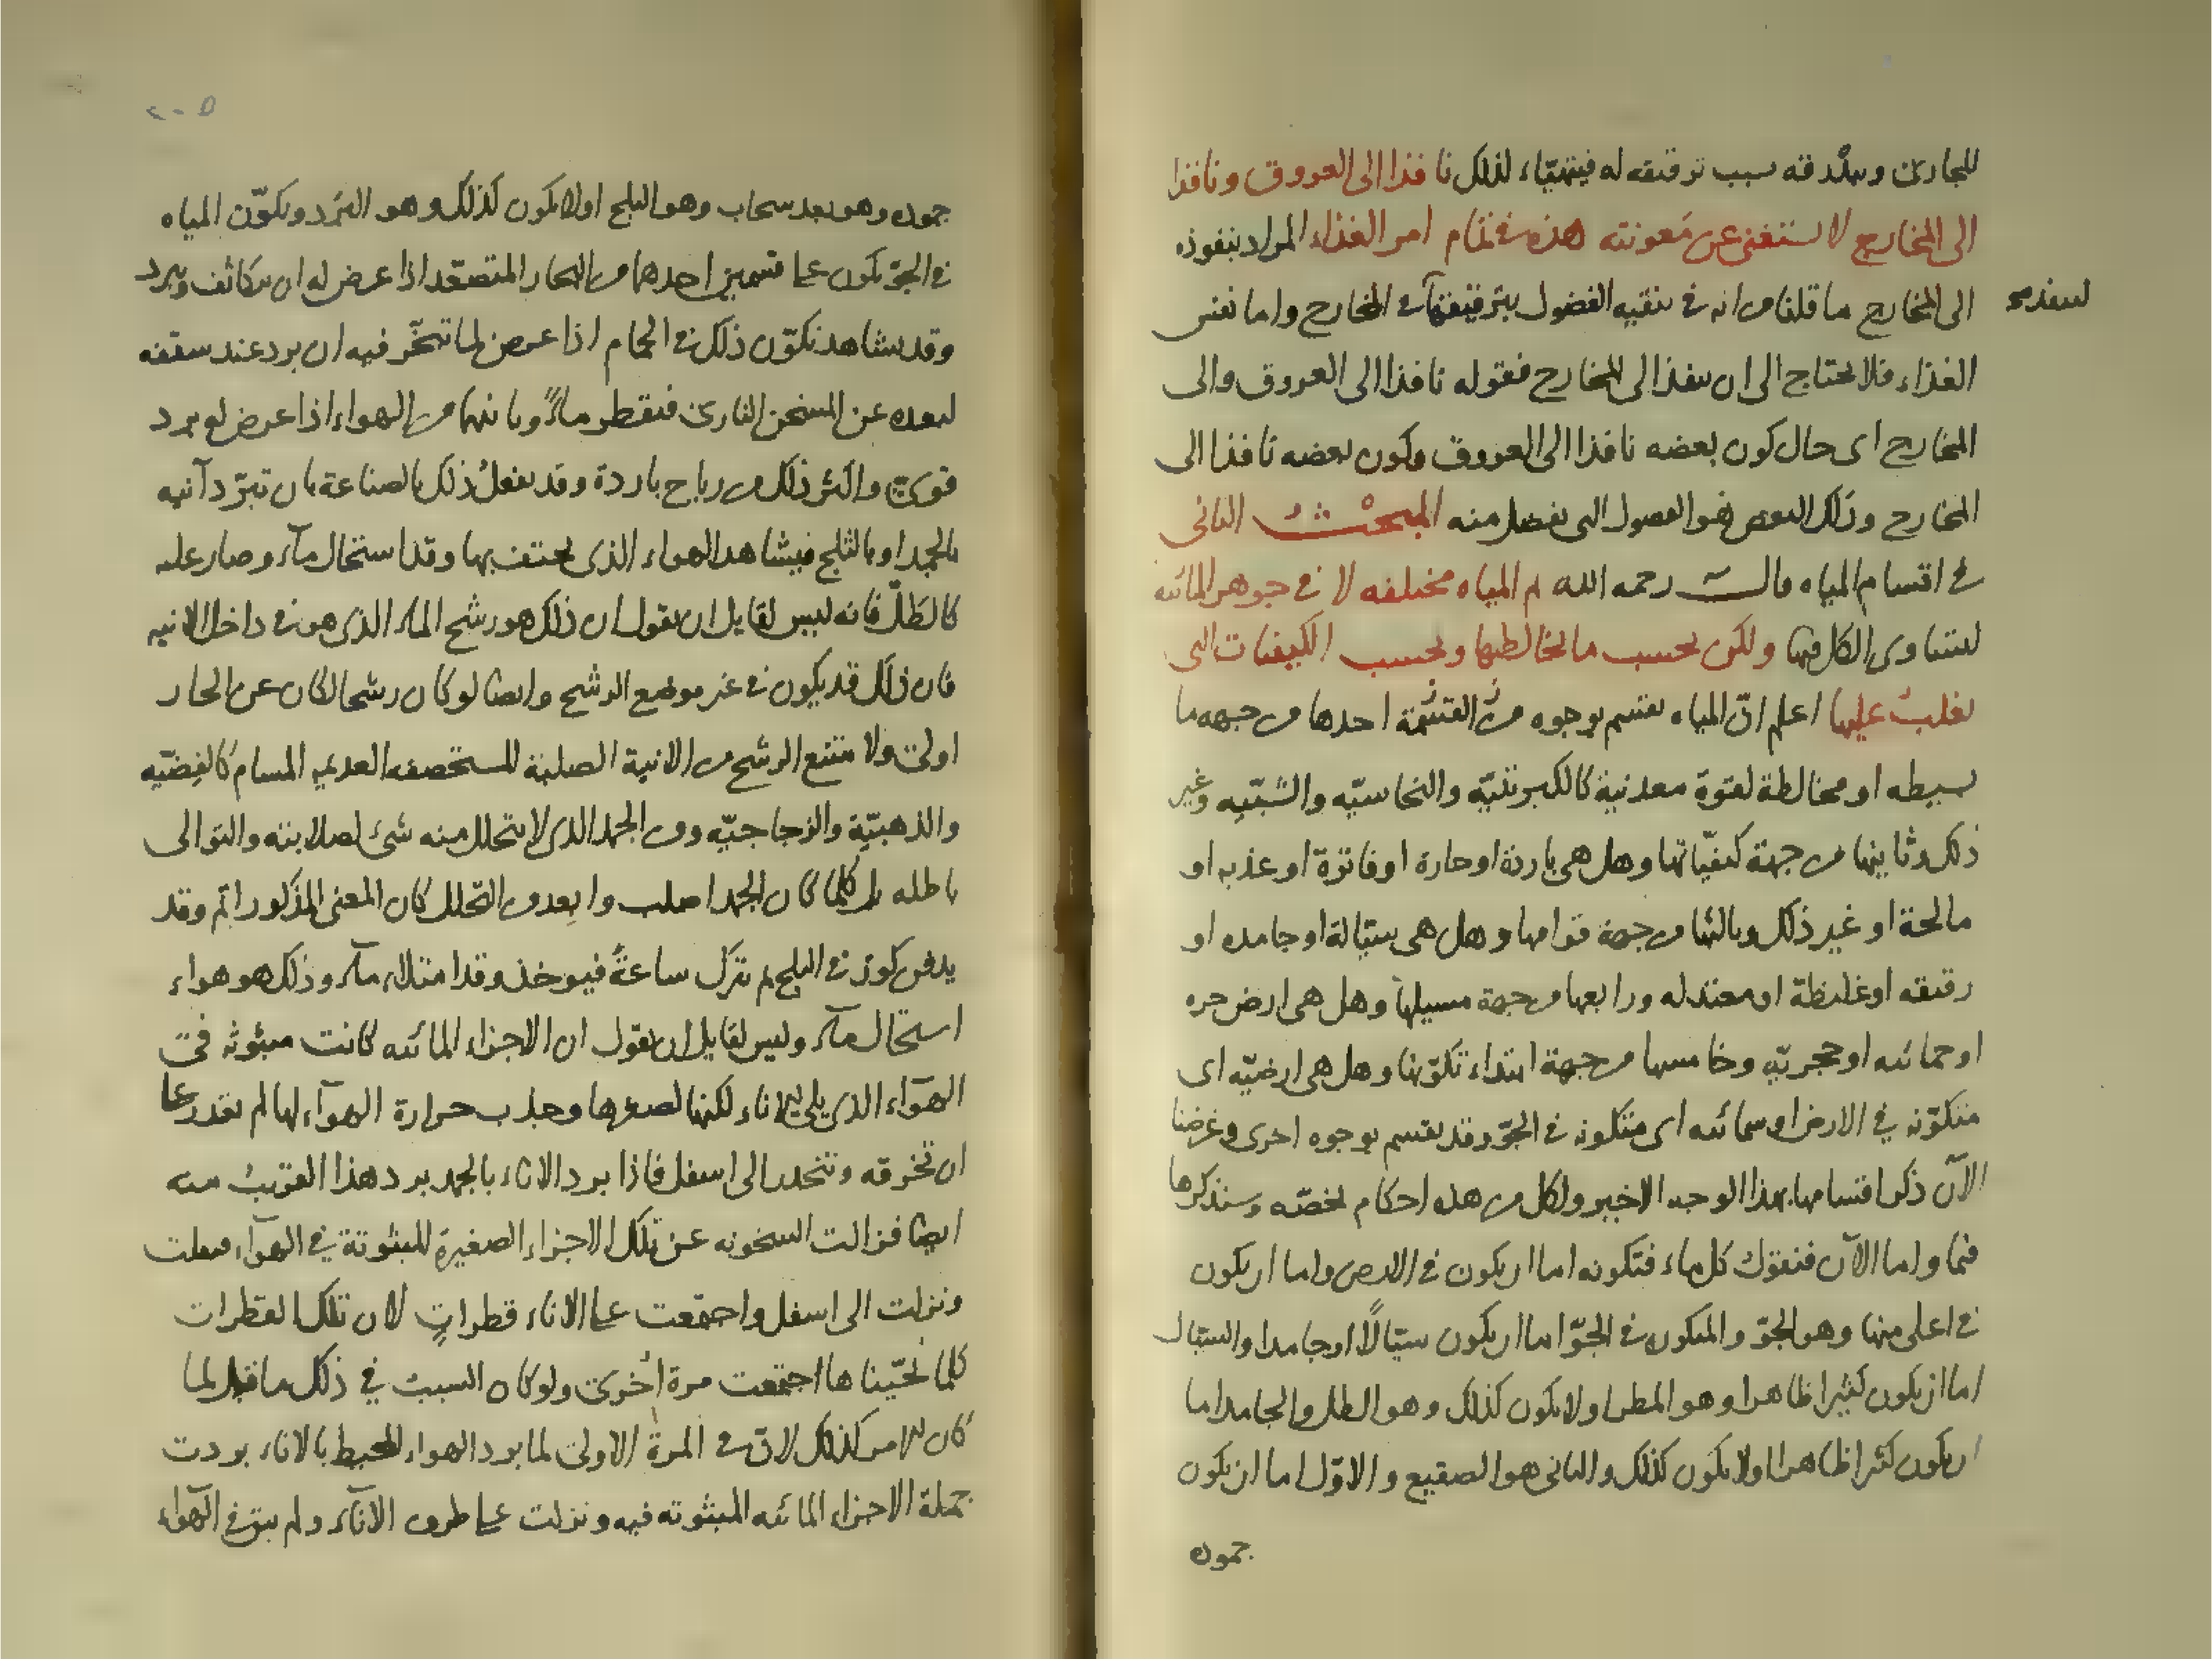 للمجارى وبدرقه بسبب ترقيقه له فيتهيّاء لذلك نافذا الى العروق ونافذا
الى المخارج لا يستغنى عن مَعونته هذه فى تمام امر الغذاء المراد بنفوذه
الى المخارج ما قلناه من انه فى تنقيه الفضول بترقيقها فى المخارج واما نفس
الغذاء فلا يحتاج الى ان ينفذ الى المخارج فقوله نافذا الى العروق والى
المخارج اى حال كون بعضه نافذا الى العروق وكون بعضه نافذا الى
المخارج وذلك البعض هو الفضول التى تفضل منه المبحث الثانى
فى اقسام المياه قال رحمه الله ثم المياه مختلفه لا فى جوهر المائيه
لتساوى الكل فيها ولكن بحسب ما يخالطها وبحسب الكيفيات التى
تغلب عليها اعلم انّ المياه تقسم بوجوه من القسمة احدها من جهه ما
بسيطه او مخالطة لقوة معدنية كالكبريتيّه والنحاسيّه والشبّيه وغير
ذلك وثانيها من جهة كيفيّاتها وهل هى باردة او حارة او فاترة او عذبه او
مالحة او غير ذلك وثالثها من جهة قوامها وهل هى سيّالة او جامده او
رقيقه او غليظة او معتدله ورابعها من جهة مسيلها وهل هى ارض حره
او حمائيه او حجريّه وخامسها من جهة ابتداء تكوّنها وهل هى ارضيّه اى
متكوّنه في الارض او سمائيه اى متكونه فى الجوّ وقد تقسم بوجوه اخرى وغرضنا
الآن ذكر اقسامها بهذا الوجه الاخير ولكل من هذه احكام تخصّه وسنذكرها
فيما واما الآن فنقول كل ماء فتكونه اما ان يكون فى الارض واما ان يكون
فى اعلى منها وهو الجوّ والمتكون فى الجوّ اما ان يكون سيّالاً او جامدا والسيّال
اما ان يكون كثيرا ظاهرا وهو المطر او لا يكون كذلك وهو الطل والجامد اما
ان يكون كثيرا ظاهرا او لا يكون كذلك والثانى هو الصقيع والاوّل اما ان يكون
جموده
جموده وهو بعد سحاب وهو الثلج او لا يكون كذلك وهو البَرَد وتكوّن المياه
فى الجوّ يكون على قسمين احدهما من البخار المتصعّد اذا عرض له ان يتكاثف ويبرد
وقد يشاهد تكوّن ذلك فى الحمام اذا عرض لما تبخّر فيه ان يبرد عند سقفه
لبعده عن المسخن النارى فيقطر ماءً وثانيها من الهواء اذا عرض له برد
قوىّ واكثر ذلك من رياح باردة وقد يفعل ذلك بالصناعة بان تبرّد آنيه
بالجمد او بالثلج فيشاهد الهواء الذى يحتف بها وقد استحال مآء وصار عليه
كالطلّ فانه ليس لقايل ان يقول ان ذلك هو رشح الماء الذى هو فى داخل الانيه
فان ذلك قد يكون فى غير موضع الرشح وايضا لو كان رشحا لكان عن الحار
اولى ولا متنع الرشح من الانية الصلبة المستحصفه العديمه المسام كالفضيّه
والذهبيّة والزجاجيّه ومن الجمد الذى لا يتحلل منه شئ لصلابته والتوالى
باطله بل كلما كان الجمد اصلب وابعد من التحلل كان المعنى المذكور اتم وقد
يدفن كوز فى الثلج ثم يترك ساعةً فيوخذ وقد امتلاء مآء وذلك هو هواء
استحال مآء وليس لقايل ان يقول ان الاجزاء المائيه كانت مبثوثه فى
الهوآء الذى يلى الاناء لكنها لصغرها وجذب حرارة الهوآء لها لم تقدر على
ان تخرقه وتنحدر الى اسفل فاذا برد الاناء بالجمد برد هذا القريب منه
ايضا فزالت السخونه عن تلك الاجزاء الصغيرة المبثوثة في الهوآء فثقلت
ونزلت الى اسفل واجتمعت على الاناء قطراتٍ لان تلك القطرات
كلما نحّيناها اجتمعت مرة أخرى ولو كان السبب في ذلك ما قيل لما
كان الامر كذلك لان فى المرة الاولى لما برد الهواء المحيط بالاناء بردت
جملة الاجزاء المائيه المبثوثه فيه ونزلت على طرف الانآء ولم يبق فى الهوآء